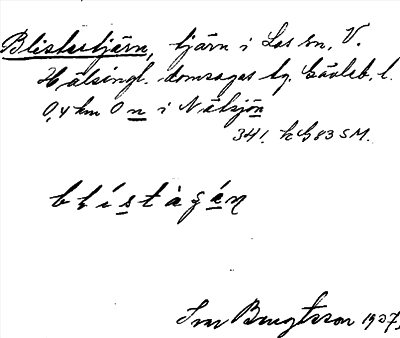 Blistertjärn, tjärn i Los sn, V.
Hälsingl. domsagas tg. Gävleb. l.
0,4 km O n i Nätsjön
341. k h 83 SM.
blístàgán
Bengtsson 1927,